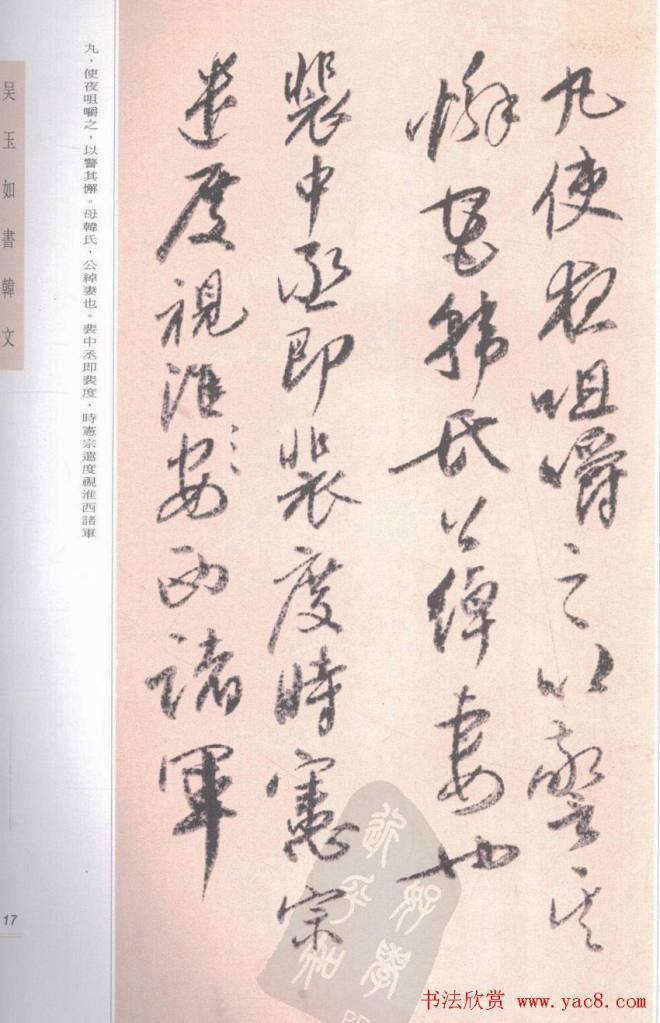 丸使夜咀嚼之以警其
懈母韓氏公綽妻也
裴中丞即裴度時憲宗
遣度視淮安西諸軍
丸，使夜咀嚼之，以警其懈。母韓氏，公綽妻也。裴中丞即裴度，時憲宗遣度視淮西諸軍
吳玉如書韓文
17
好學
近乎知
书法欣赏 www.yac8.com